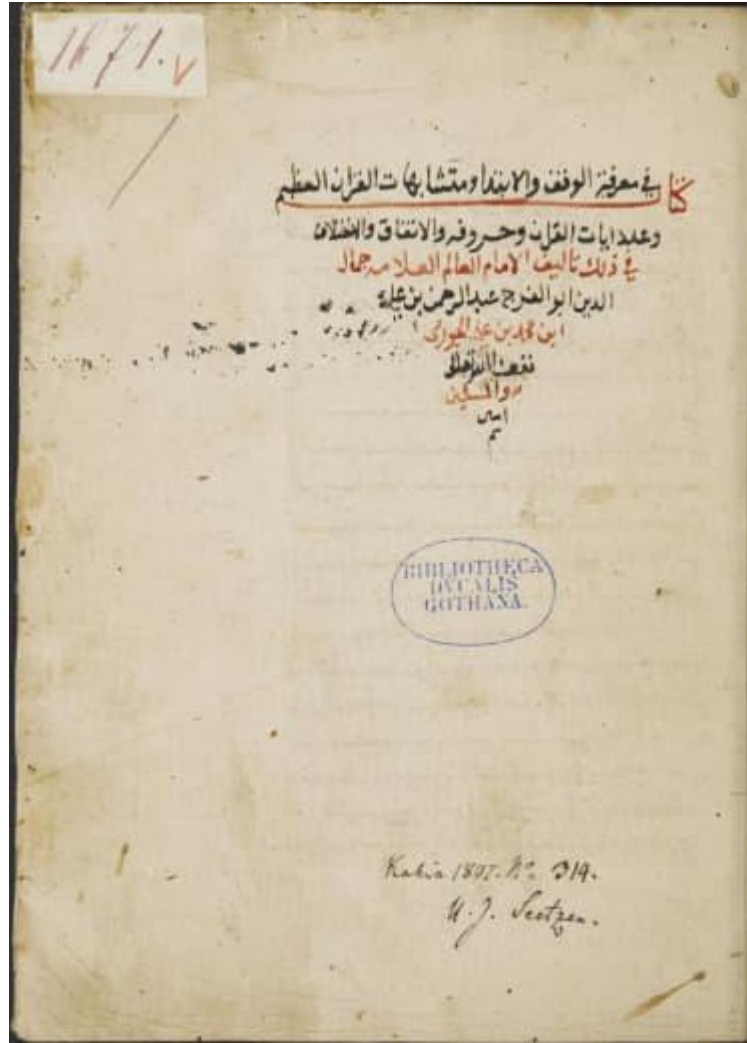 1671.
كتاب في معرفة الوقف والابتدا ومتشابهات القران العظيم
وعدد ايات القران وحروفه والاتفاق والاختلاف
في ذلك تاليف الامام العالم العلامه جمال
الدين ابو الفرج عبد الرحمن بن علي
ابن محمد بن علي الجوزي
نفعنا الله
والمسلمين
امين
BIBLIOTHECA
DVCALIS
GOTHANA.
Kahira 1807. No. 314.
U. J. Seetzen.